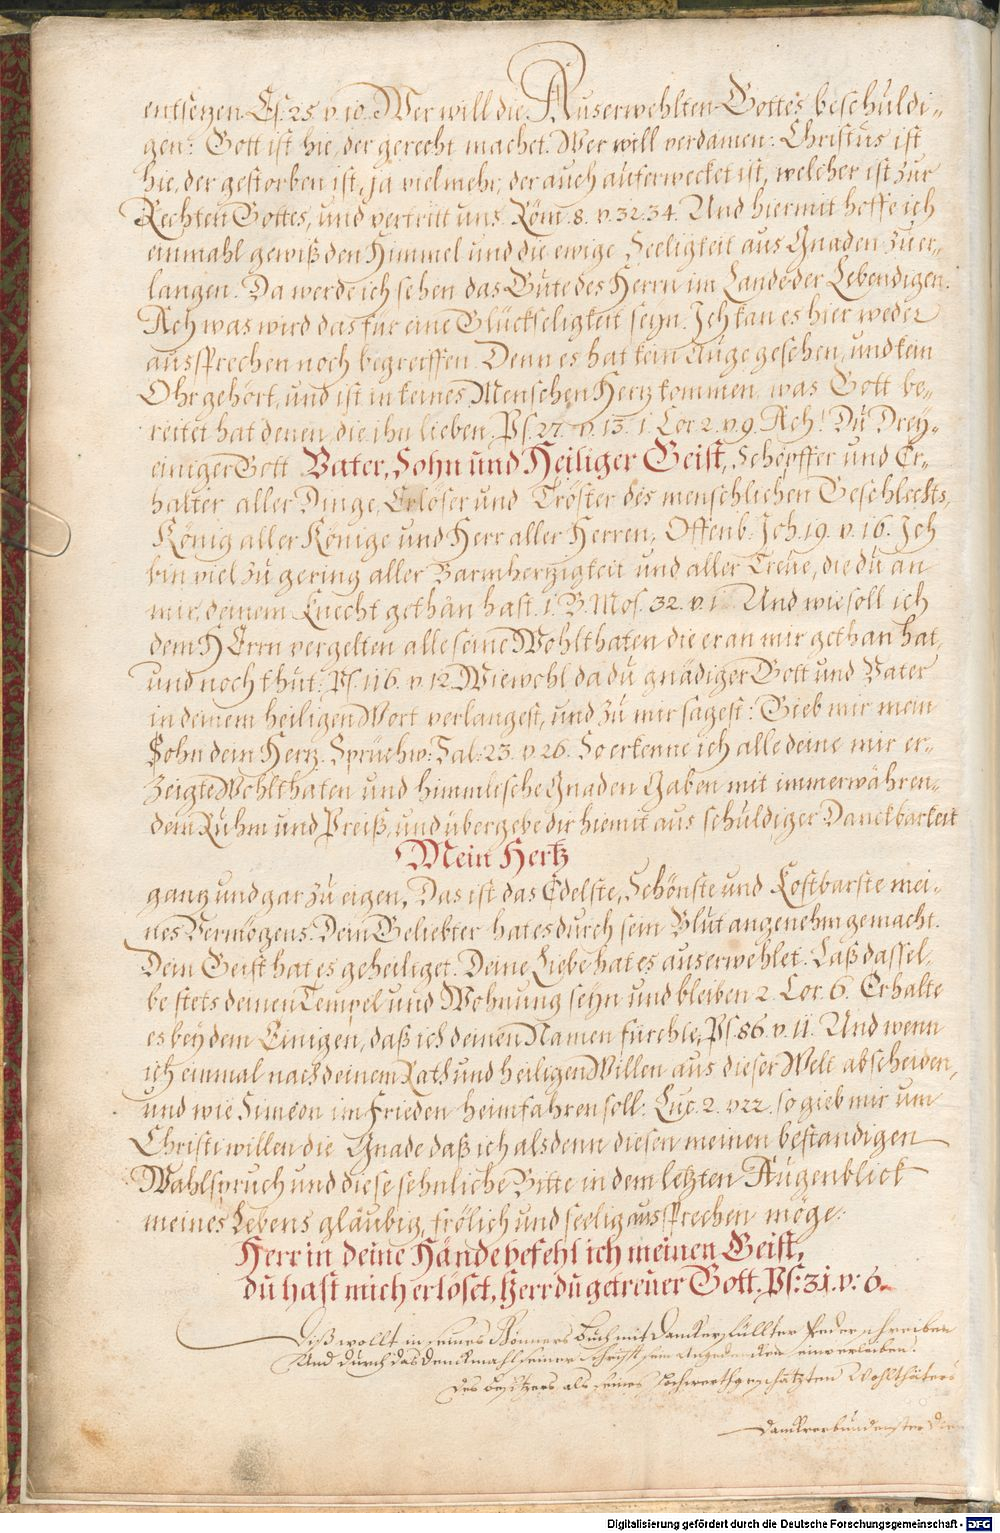 entsetzen Es. 25 v. 10. Wer will die Auserwehlten Gottes beschuldi-
gen: Gott ist hie, der gerecht machet. Wer will verdamen: Christus ist
hie, der gestorben ist, ja vielmehr, der auch auferwecket ist, welcher ist zur
Rechten Gottes, und vertritt uns. Röm. 8. v. 32. 34. Und hiermit hoffe ich
einmahl gewiß den Himmel und die ewige Seeligkeit aus Gnaden zu er-
langen. Da werde ich sehen das Gute des Herrn im Lande der Lebendigen.
Ach was wird das für eine Glückseligkeit seyn. Ich kan es hier weder
aussprechen noch begreiffen. Denn es hat kein Auge gesehen, und kein
Ohr gehört, und ist in keines Menschen Hertz kommen, was Gott be-
reitet hat denen, die ihn lieben. Ps. 27. v. 13. 1. Cor. 2. v. 9. Ach! Du Drey-
einiger Gott Vater, Sohn und Heiliger Geist, Schöpffer und Er-
halter aller Dinge, Erlöser und Tröster des menschlichen Geschlechts,
König aller Könige und Herr aller Herren, Offenb. Joh. 19. v. 16. Ich
bin viel zu gering aller Barmhertzigkeit und aller Treue, die du an
mir, deinem Knecht gethan hast. 1. B. Mos. 32. v. Und wie soll ich
dem HErrn vergelten alle seine Wohlthaten die er an mir gethan hat,
und noch thut: Ps. 116. v. 12. Wiewohl da du gnädiger Gott und Vater
in deinem heiligen Wort verlangest, und zu mir sagest: Gieb mir mein
Sohn dein Hertz. Sprüchw: Sal: 23. v. 26. So erkenne ich alle deine mir er-
zeigte Wohlthaten und himmlische Gnaden Gaben mit immerwähren-
dem Ruhm und Preiß, und übergebe dir hiemit aus schuldiger Danckbarkeit
Mein Hertz
gantz und gar zu eigen, Das ist das Edelste, Schönste und Kostbarste mei-
nes Vermögens. Dein Geliebter hat es durch sein Blut angenehm gemacht.
Dein Geist hat es geheiliget. Deine Liebe hat es auserwehlet. Laß dassel-
be stets deinen Tempel und Wohnung seyn und bleiben 2. Cor. 6. Erhalte
es bey dem Einigen, daß ich deinen Namen fürchte, Ps. 86. v. 11. Und wenn
ich einmal nach deinem Rath und heiligen Willen aus dieser Welt abscheiden,
und wie Simeon im Frieden heimfahren soll: Luc. 2. v 22. so gieb mir um
Christi willen die Gnade daß ich alsdenn diesen meinen bestandigen
Wahlspruch und diese sehnliche Bitte in dem letzten Augenblick
meines Lebens gläubig, frölich und seelig aussprechen möge:
Herr in deine Hände befehl ich meinen Geist,
du hast mich erlöset, Herr du getreuer Gott. Ps: 31. v: 6.
Diß wollt in seines Gönners Buch mit Danck erfüllter Feder schreiben
Und durch das Denckmahl seiner Schrifft sein Angedencken einverleiben.
Des Besitzers als seines Hochwerthgeschätzten Wohlthäters
Danckverbundenster
Digitalisierung gefördert durch die Deutsche Forschungsgemeinschaft - DFG